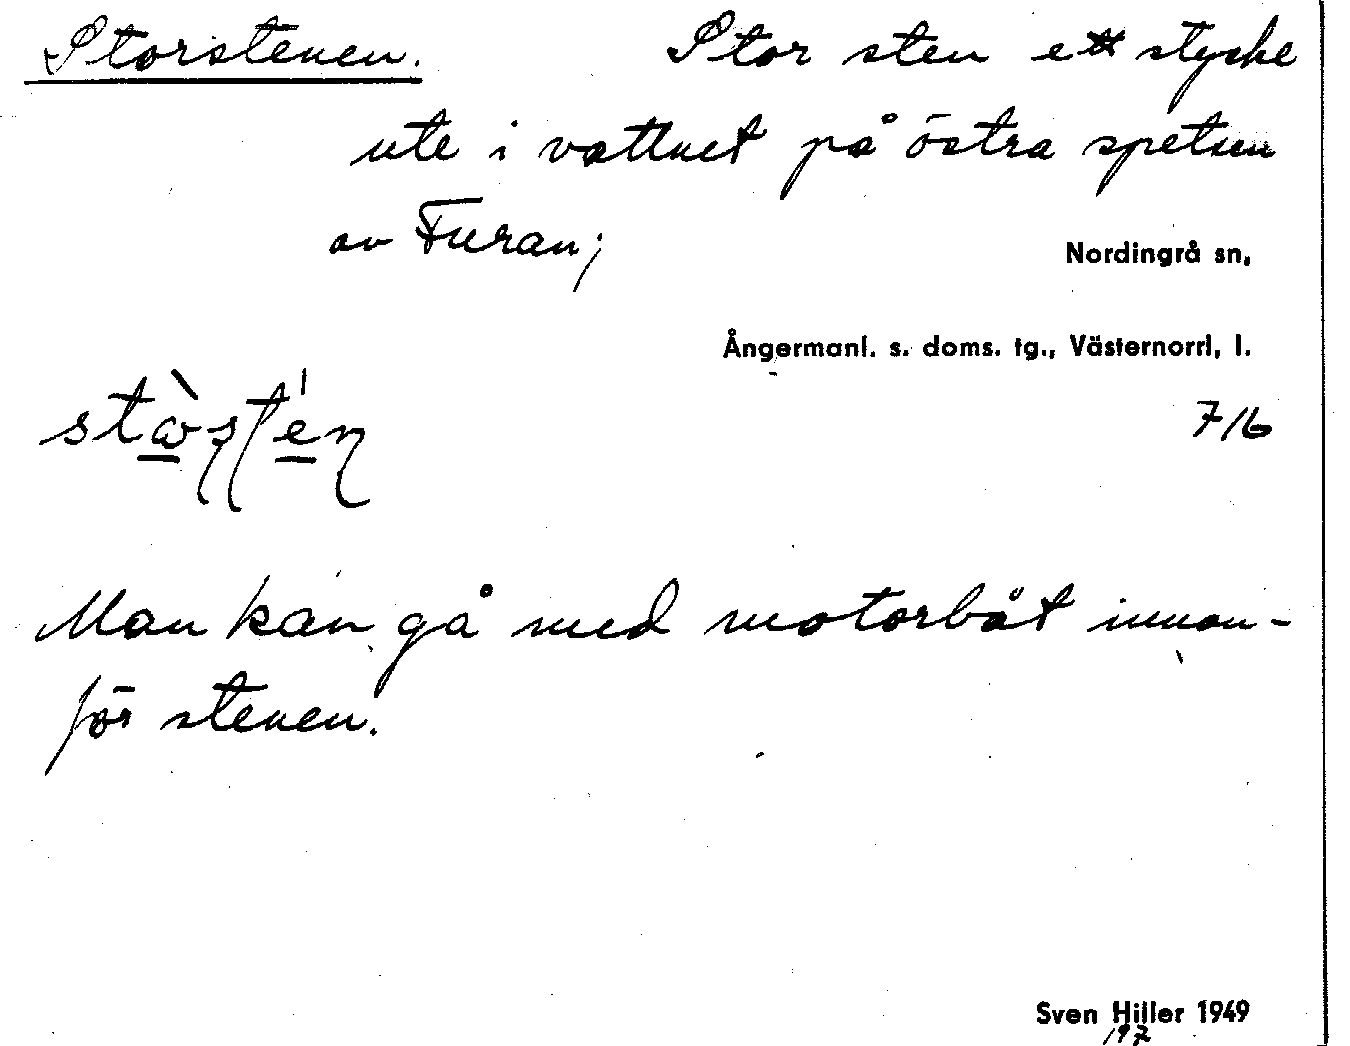 Storstenen. Stor sten ett stycke
ute i vattnet på östra spetsen
av Furan;
Nordingrå sn,
Ångermanl. s. doms. tg., Västernorrl, l.
7/6
Man kan gå med motorbåt innan-
för stenen.
Sven Hiller 1949
197